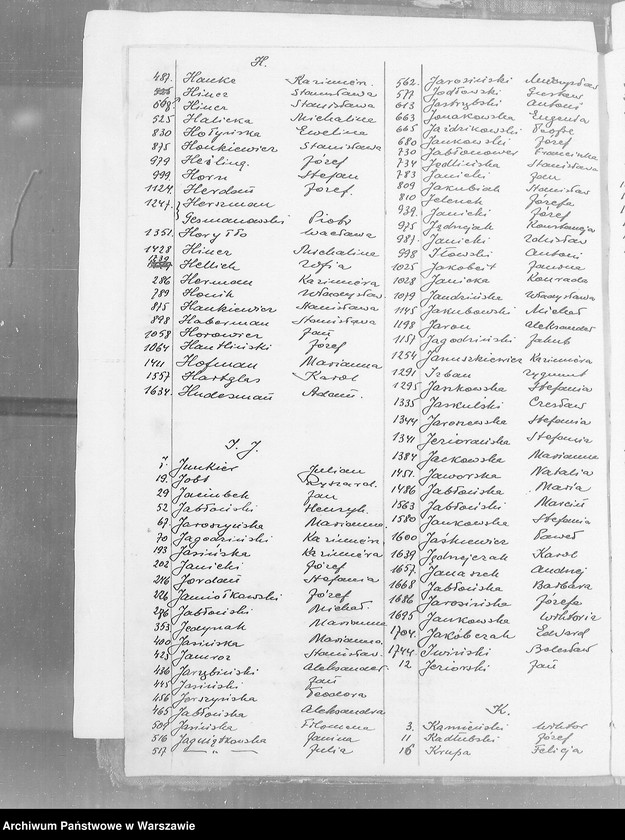 H.
487. Hauke Kazimiera.
Hincz Stanisława
Hincz Stanisława
525 Halicka Michalina
830 Hołyńska Ewelina
875 Honkiewicz Stanisława
979 Hesling. Józef
999 Horn Stefan
1124. Herdan Józef.
1247. Herszman
Gesmanowski Piotr
1351. Horyłło Wacława
1428 Hincz Michalina
Hellich Zofia
286 Herman Kazimiera
789 Honik Władysław
815 Hankiewicz Stanisława
898 Haberman Stanisława
1058 Horowicz Jan
1064 Józef
1411 Hofman Marianna
1557 Hartglas Karol
1634. Hudesman Adam.
I. J.
1. Junkier Julian
19. Jobt Ryszard.
29 Jan
52 Jabłoński Henryk.
67. Jaroszyńska Marianna.
70 Jagodziński Kazimierz.
193 Jasińska Kazimiera
202 Janicki Józef
216 Jordan Stefania
226 Jamiołkowski Józef
276 Jabłoński Michał.
353 Jedynak Marianna
400 Jasińska Marianna.
423 Jamroz Stanisław.
436 Jarzębiński Aleksander
445 Jasiński Jan
456 Jerszyńska Teodora
465 Jabłońska Aleksandra
501 Jasińska Filomena
516 Jagniątkowska Janina
517 — " — Julia
562. Jarosiński Mieczysław
577 Jodłowski Gustaw
613 Jastrzębski Antoni
663 Jonakowska Eugenia
665 Jażdżikowski
680 Jankowski Józef
730 Jabłonowez Franciszka
734 Jedlińska Stanisława
783 Janicki Jan
809 Jakubiak Stanisław
810 Jelenek Józefa
939. Janicki Józef
975 Jędrzejak Konstancja
987. Janicki Zdzisław
998 Iłowski Antoni
1025 Jakobeit Janina
1028 Janicka Konrada
1079 Jaudzińska Władysława
1145 Jakubowski Michał
1198 Jaron Aleksander
1157 Jagodziński Jakub
1254 Januszkiewicz Kazimiera
1291 Izban Zygmunt
1295 Jankowska Stefania
1335 Jaskulski Czesław
1344 Jaroszewska Stefania
1341 Jeziorańska Stefania
1384 Jackowska Marianna
1451. Jaworska Natalia
1486 Jabłońska Maria
1563 Jabłoński Marcin
1580 Jankowska Stefania
1600 Jaśkiewicz Paweł
1639 Jędrzejczak Karol
1657. Janaszek Andrzej
1668 Jabłońska Barbara
1686 Jarosińska Józefa
1695 Jankowska Wiktoria
1704. Jakóbczak Edward
1744. Iwiński Bolesław
12 Jeziorski Jan
K.
3. Kamieński Wiktor
11 Kadłubski Józef
16 Krupa Felicja
Archiwum Państwowe w Warszawie